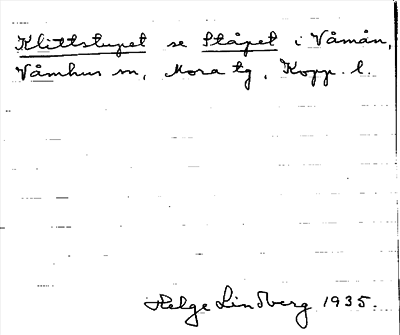 Klittstupet se Ståpet i Våmån,
Våmhus sn, Mora tg, Kopp. l.
Helge Lindberg 1935.